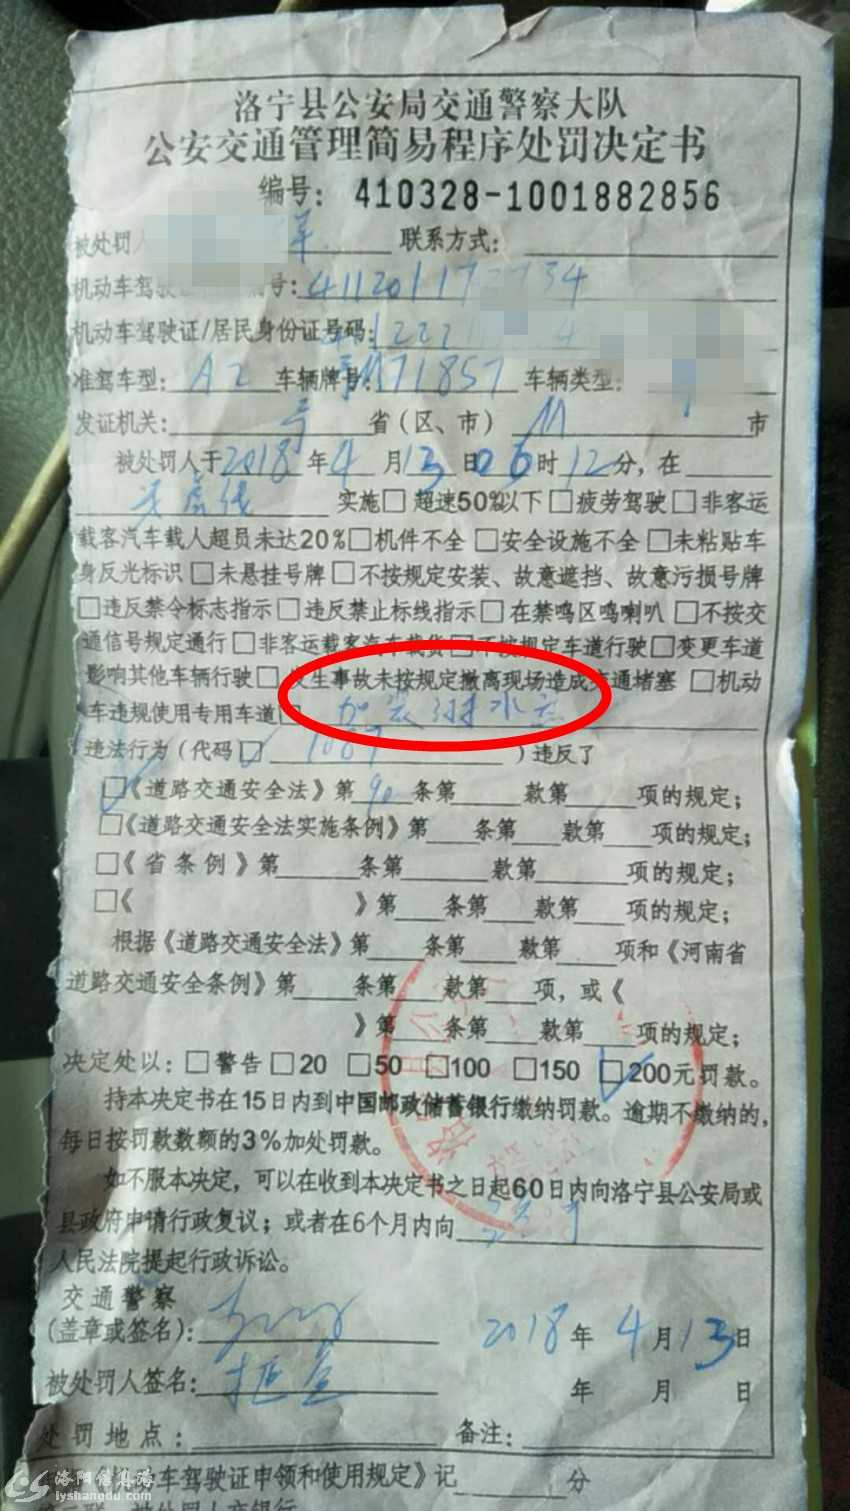 洛宁县公安局交通警察大队
公安交通管理简易程序处罚决定书
编号: 410328-1001882856
被处罚人 军 联系方式:
机动车驾驶 编号: 41120117 734
机动车驾驶证/居民身份证号码: 1222
准驾车型: A2 车辆牌号: M71857 车辆类型:
发证机关: 号 省(区、市) M 市
被处罚人于2018年4月13日06时12分,在
实施□超速50%以下□疲劳驾驶□非客运
载客汽车载人超员未达20%□机件不全□安全设施不全□未粘贴车
身反光标识□未悬挂号牌□不按规定安装、故意遮挡、故意污损号牌
□违反禁令标志指示□违反禁止标线指示□在禁鸣区鸣喇叭□不按交
通信号规定通行□非客运载客汽车载货□不按规定车道行驶□变更车道
影响其他车辆行驶□发生事故未按规定撤离现场造成交通堵塞□机动
车违规使用专用车道□ 加装射水
违法行为(代码□ 1087 )违反了
□《道路交通安全法》第90条第 款第 项的规定;
□《道路交通安全法实施条例》第 条第 款第 项的规定;
□《省条例》第 条第 款第 项的规定;
□《 》第 条第 款第 项的规定;
根据《道路交通安全法》第 条第 款第 项和《河南省
道路交通安全条例》第 条第 款第 项,或《
》第 条第 款第 项的规定;
决定处以:□警告□20 □50 □100 □150 □200元罚款。
持本决定书在15日内到中国邮政储蓄银行缴纳罚款。逾期不缴纳的,
每日按罚款数额的3%加处罚款。
如不服本决定,可以在收到本决定书之日起60日内向洛宁县公安局或
县政府申请行政复议;或者在6个月内向
人民法院提起行政诉讼。
交通警察
(盖章或签名): 2018年4月13日
被处罚人签名: 年 月 日
处罚地点: 备注:
车驾驶证申领和使用规定》记 分
洛阳信息港
lyshangdu.com